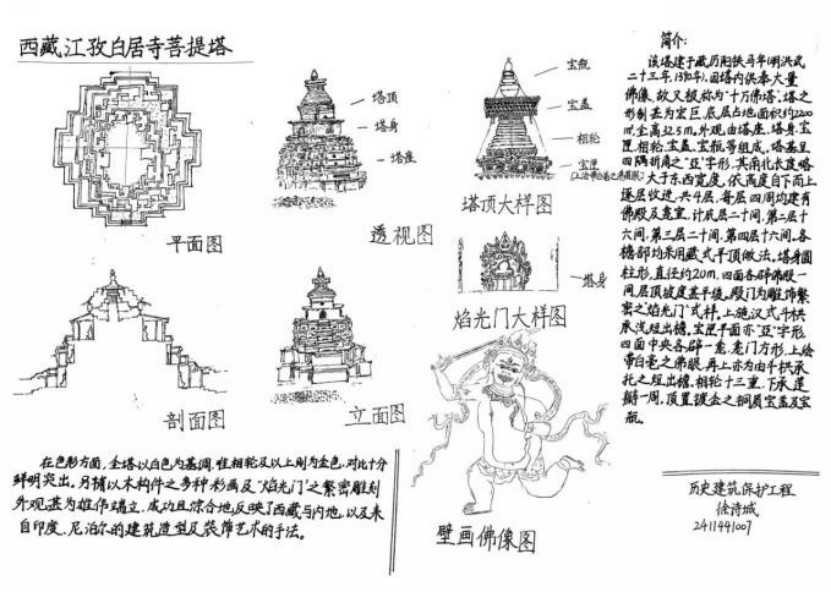 西藏江孜白居寺菩提塔
平面图
塔顶
塔身
塔座
透视图
宝瓶
宝盖
相轮
宝匣
塔顶大样图
塔身
焰光门大样图
剖面图
立面图
壁画佛像图
简介:
该塔建于藏历阳铁马年(明洪武
二十三年,1390年),因塔内供奉大量
佛像,故又被称为“十万佛塔”,塔之
形制甚为宏巨,底层占地面积约2200
㎡,全高32.5m。外观由塔座、塔身、宝
匣、相轮、宝盖、宝瓶等组成。塔基呈
四隅折角之“亚”字形,其南北长度略
大于东西宽度,依高度自下而上
逐层收进,共4层,每层四周均建有
佛殿及龛室,计底层二十间,第二层十
六间,第三层二十间,第四层十六间。各
檐部均采用藏式平顶做法。塔身圆
柱形,直径约20m,四面各辟佛殿一
间,层顶坡度甚平缓。殿门为雕饰繁
密之“焰光门”式样。上施汉式斗栱
承浅短出檐。宝匣平面亦“亚”字形,
四面中央各辟一龛,龛门方形,上绘
带白毫之佛眼,再上亦为由斗栱承
托之短出檐。相轮十三重,下承莲
瓣一周。顶置镀金之铜质宝盖及宝
瓶。
在色彩方面,全塔以白色为基调,唯相轮及以上则为金色,对比十分
鲜明突出。另辅以木构件之多种彩画及“焰光门”之繁密雕刻
外观甚为雄伟端立,成功且综合地反映了西藏与内地,以及来
自印度、尼泊尔的建筑造型及装饰艺术的手法。
历史建筑保护工程
徐诗城
2411441007